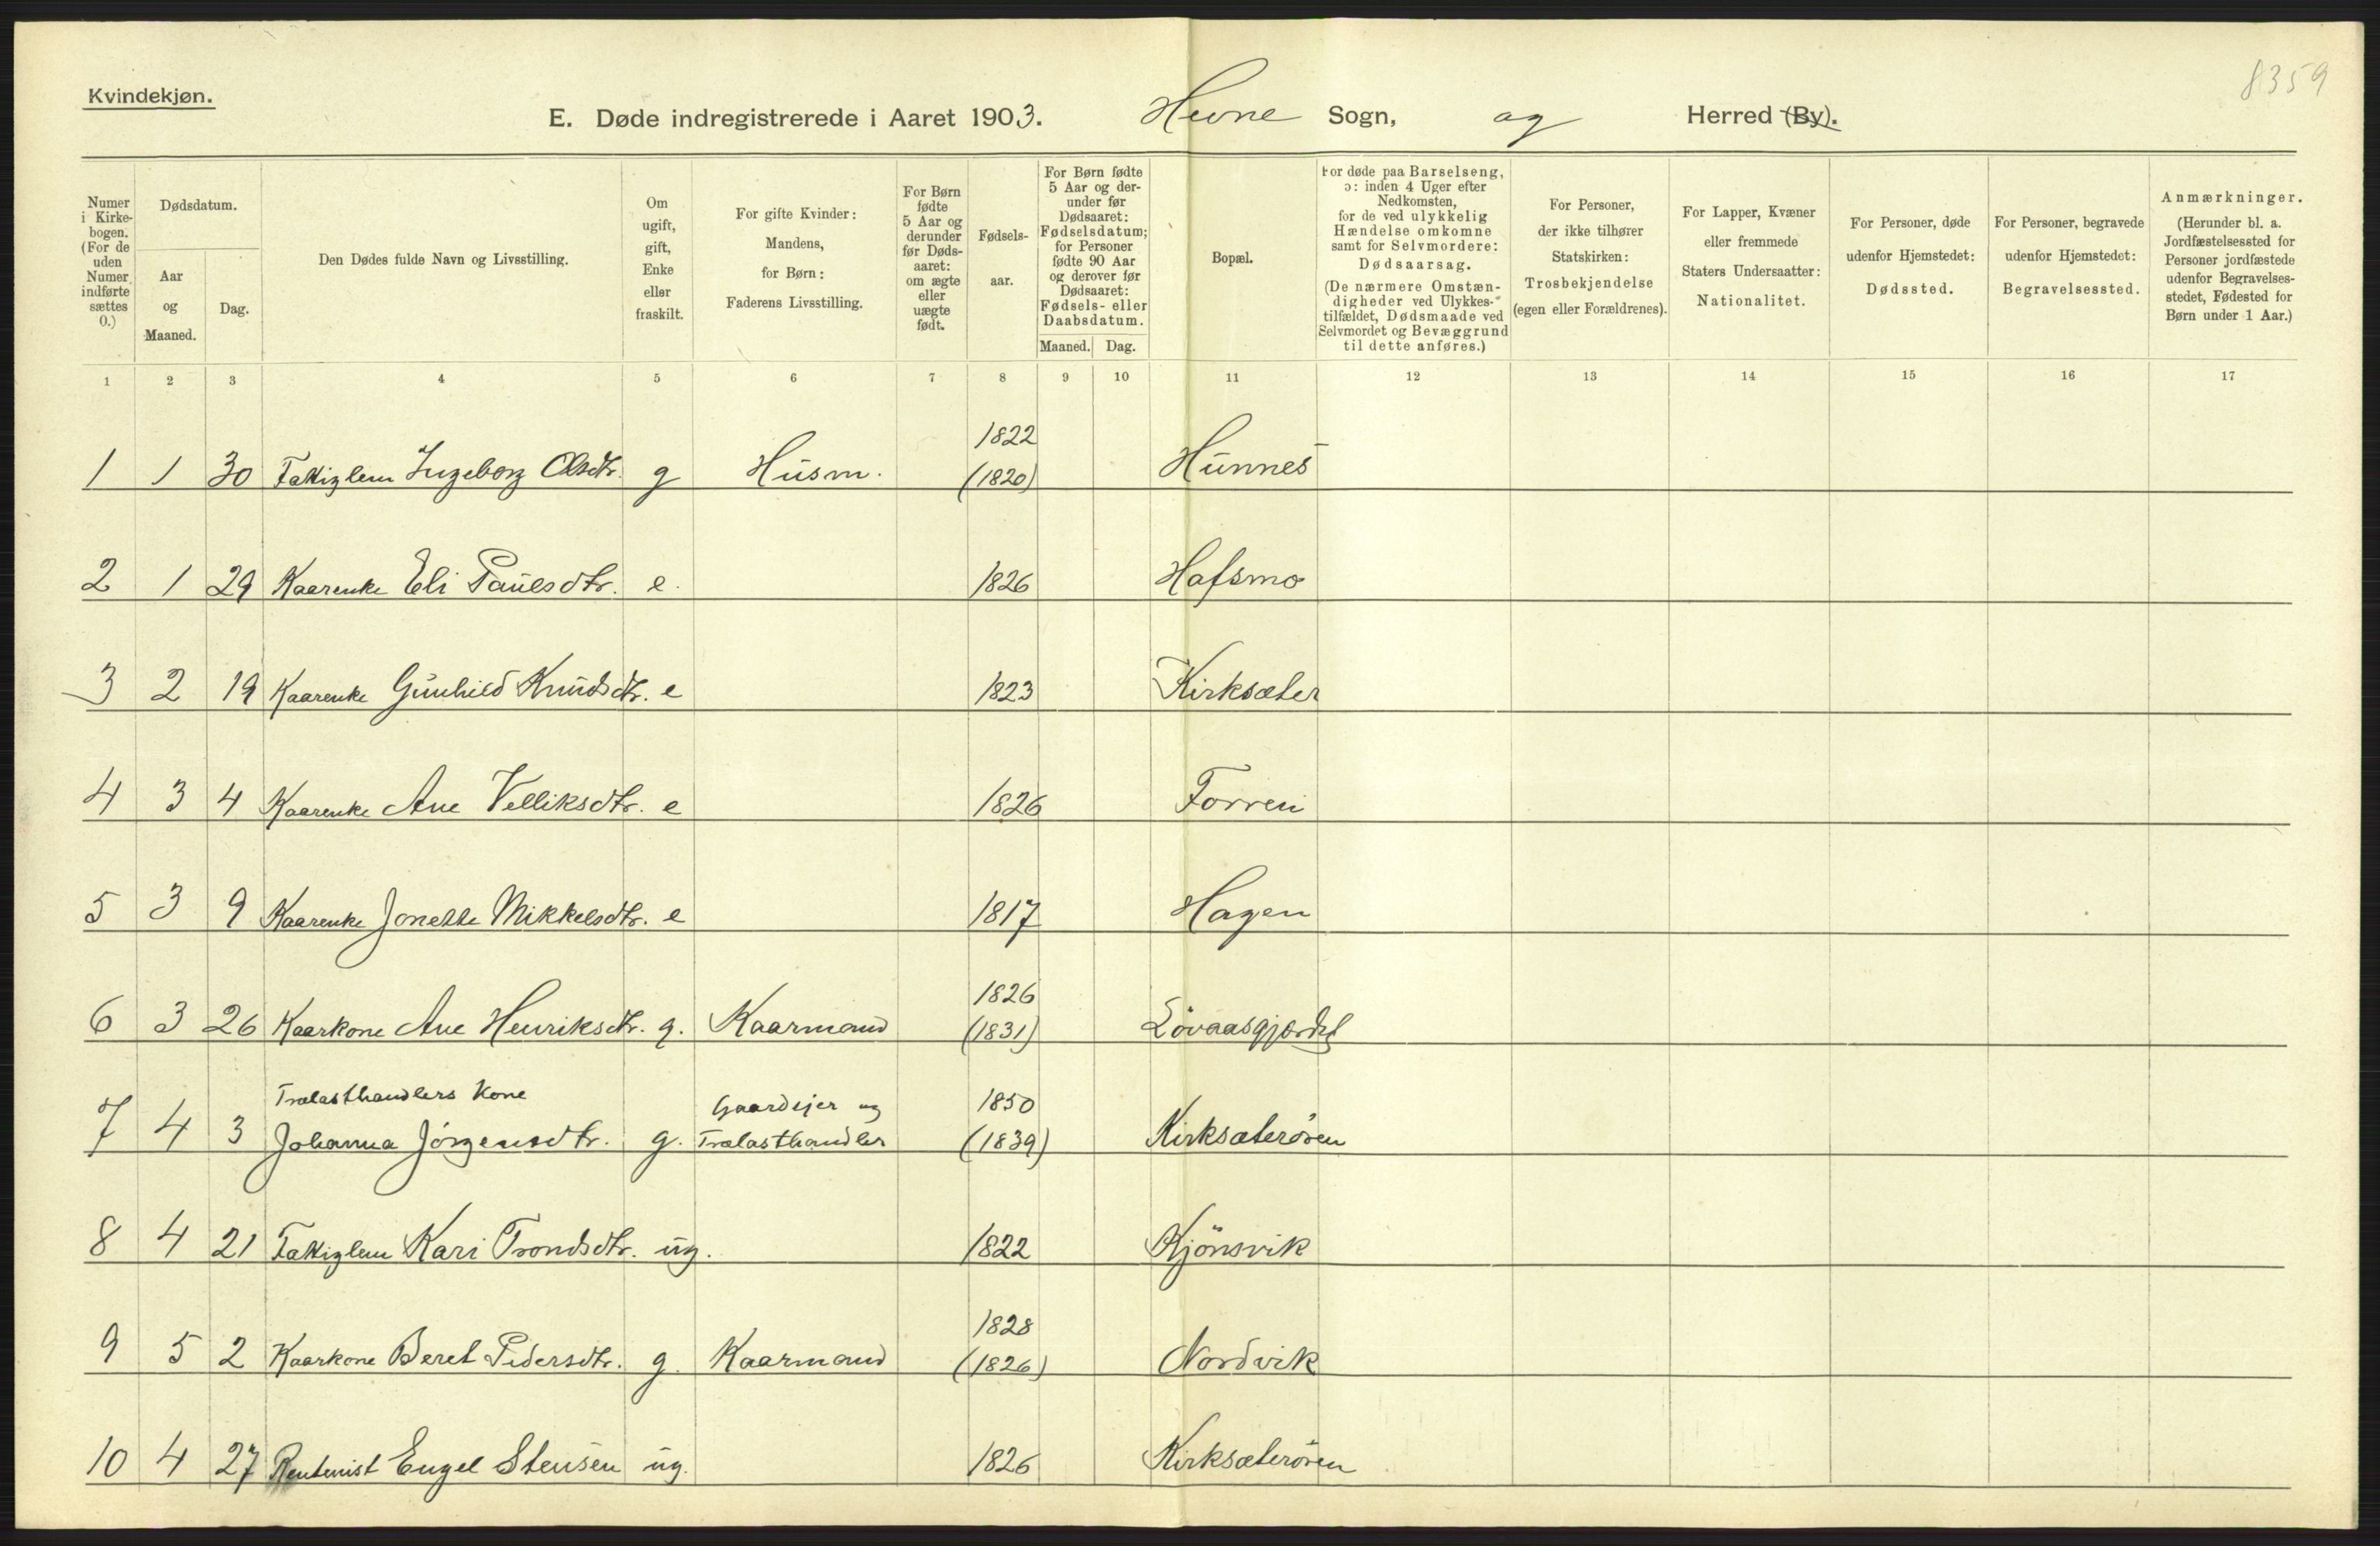 8359
Kvindekjøn.
E. Døde indregistrerede i Aaret 1903. Hevne Sogn, og Herred (By).
Numer i Kirkebogen. (For de uden Numer indførte sættes 0.)
Dødsdatum.
Aar og Maaned.
Dag.
Den Dødes fulde Navn og Livsstilling.
Om ugift, gift, Enke eller fraskilt.
For gifte Kvinder: Mandens, for Børn: Faderens Livsstilling.
For Børn fødte 5 Aar og derunder før Dødsaaret: om ægte eller uægte født.
Fødselsaar.
For Børn fødte 5 Aar og derunder før Dødsaaret: Fødselsdatum; for Personer fødte 90 Aar og derover før Dødsaaret: Fødsels- eller Daabsdatum.
Maaned. Dag.
Bopæl.
For døde paa Barselseng, ɔ: inden 4 Uger efter Nedkomsten, for de ved ulykkelig Hændelse omkomne samt for Selvmordere: Dødsaarsag. (De nærmere Omstændigheder ved Ulykkestilfældet, Dødsmaade ved Selvmordet og Bevæggrund til dette anføres.)
For Personer, der ikke tilhører Statskirken: Trosbekjendelse (egen eller Forældrenes).
For Lapper, Kvæner eller fremmede Staters Undersaatter: Nationalitet.
For Personer, døde udenfor Hjemstedet: Dødssted.
For Personer, begravede udenfor Hjemstedet: Begravelsessted.
Anmærkninger. (Herunder bl. a. Jordfæstelsessted for Personer jordfæstede udenfor Begravelsesstedet, Fødested for Børn under 1 Aar.)
1 2 3 4 5 6 7 8 9 10 11 12 13 14 15 16 17
1 1 30 Fattiglem Ingeborg Olsdtr. g Husm. 1822 (1820) Hunnes
2 1 29 Kaarenke Eli Paulsdtr. e. 1826 Hafsmo
3 2 19 Kaarenke Gunhild Knudsdtr. e 1823 Kirksæter
4 3 4 Kaarenke Ane Velliksdtr. e 1826 Forren
5 3 9 Kaarenke Jonette Mikkelsdtr. e 1817 Hagen
6 3 26 Kaarkone Ane Henriksdtr. g. Kaarmand 1826 (1831) Lövaasgjærdet
7 4 3 Trælasthandlers Kone Johanna Jörgensdtr. g. Gaardejer og Trælasthandler 1850 (1839) Kirksæterören
8 4 21 Fattiglem Kari Trondsdtr. ug. 1822 Kjönsvik
9 5 2 Kaarkone Beret Pedersdtr. g. Kaarmand 1828 (1826) Nordvik
10 4 27 Rentenist Engel Stensen ug. 1826 Kirksæterören